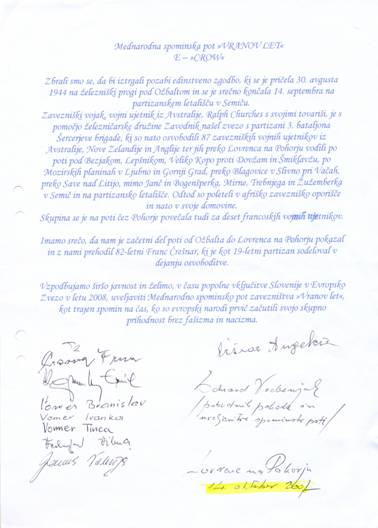 Mednarodna spominska pot »VRANOV LET«
E – »CROW«
Zbrali smo se, da bi iztrgali pozabi edinstveno zgodbo, ki se je pričela 30. avgusta
1944 na železniški progi pod Ožbaltom in se je srečno končala 14. septembra na
partizanskem letališču v Semiču.
Zavezniški vojak, vojni ujetnik iz Avstralije, Ralph Churches s svojimi tovariši, je s
pomočjo železničarske družine Zavodnik našel zvezo s partizani 3. bataljona
Šercerjeve brigade, ki so nato osvobodili 87 zavezniških vojnih ujetnikov iz
Avstralije, Nove Zelandije in Anglije ter jih preko Lovrenca na Pohorju vodili po
poti pod Bezjakom, Lepšnikom, Veliko Kopo proti Dovžam in Šmiklavžu, po
Mozirskih planinah v Ljubno in Gornji Grad, preko Blagovice v Slivno pri Vačah,
preko Save nad Litijo, mimo Janč in Bogenšperka, Mirne, Trebnjega in Žužemberka
v Semič in na partizansko letališče. Odtod so poleteli v afriško zavezniško oporišče
in nato v svoje domovine.
Skupina se je na poti čez Pohorje povečala tudi za deset francoskih vojnih ujetnikov.
Imamo srečo, da nam je začetni del poti od Ožbalta do Lovrenca na Pohorju pokazal
in z nami prehodil 82-letni Franc Črešnar, ki je kot 19-letni partizan sodeloval v
dejanju osvoboditve.
Vzpodbujamo širšo javnost in želimo, v času popolne vključitve Slovenije v Evropsko
Zvezo v letu 2008, uveljaviti Mednarodno spominsko pot zavezništva »Vranov let«,
kot trajen spomin na čas, ko so evropski narodi prvič začutili svojo skupno
prihodnost brez fašizma in nacizma.
Vomer Branislav
Vomer Ivanka
Vomer Tinca
Lovrenc na Pohorju
oktober 2007